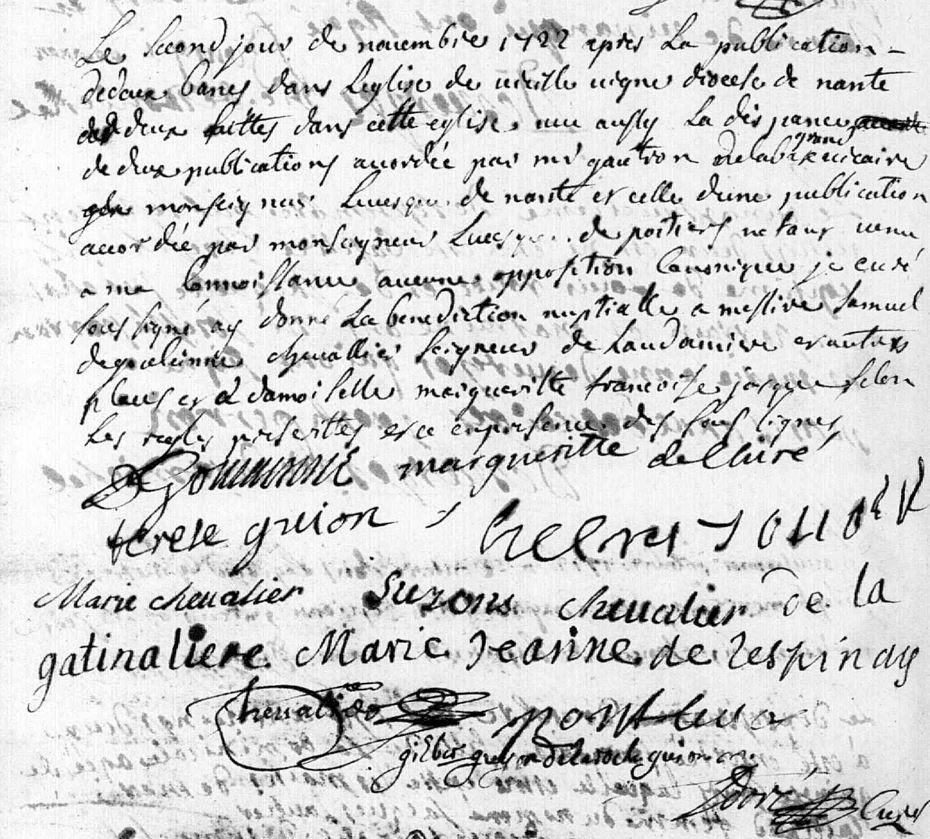 Le second jour de nouembre 1722 apres La publication
dedeux bans dans Leglise de uieille uigne diocese de nante
deux faittes dans cette eglise, ueu aussy La dispance
de deux publications acordée par mr gaution grand uicaire
de monseigneur Leuesque de nante et celle dune publication
accordée par monseigneur Leuesque de poitiers netant uenu
a ma Connoissance aucune opposition Canonique je curé
sous signé ay donné La benediction nuptialle a messire Samuel
degoulainne cheuallier seigneur de Laudouiniere et autres
places et a damoiselle margueritte francoise jaques selon
Les regles prescrittes et ce enpresence des sous signes
DGoulainne margueritte
terese guion
Marie cheualier Suzons cheualier de la
gatinaliere Marie Jeanne de Lespinay
cheuallier
gilber guion
Doré Curé